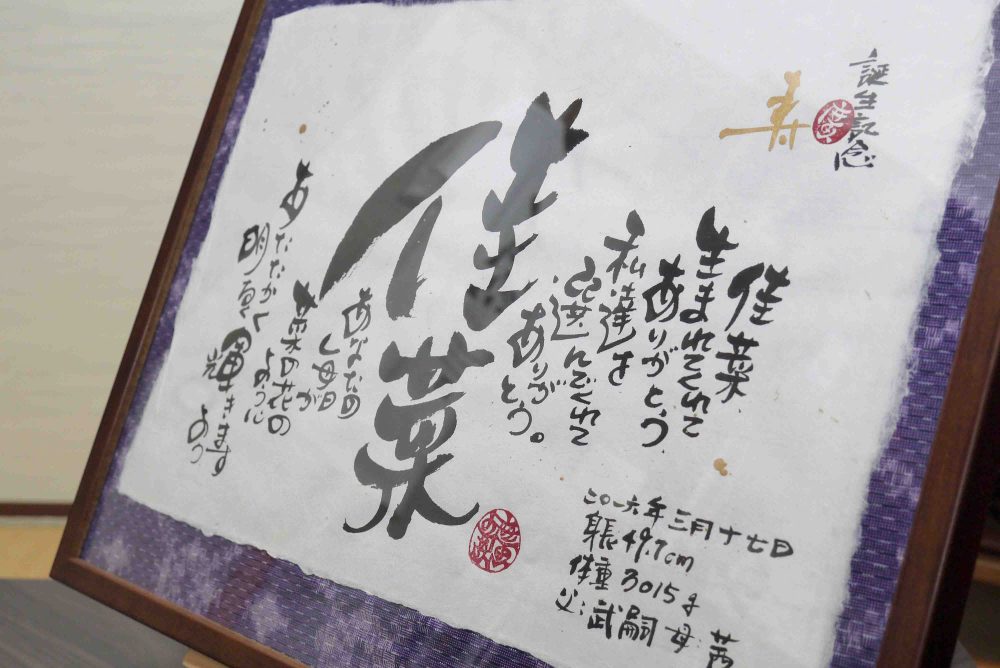 誕生記念
寿
佳菜
生まれてくれて
ありがとう
私達を
選んでくれて
ありがとう。
佳菜
あなたの
毎日が
菜の花の
ような心
あたたかく
明るく
輝きますよう
二〇一六年三月十七日
身長49.7cm
体重3015g
父：武嗣 母：茜